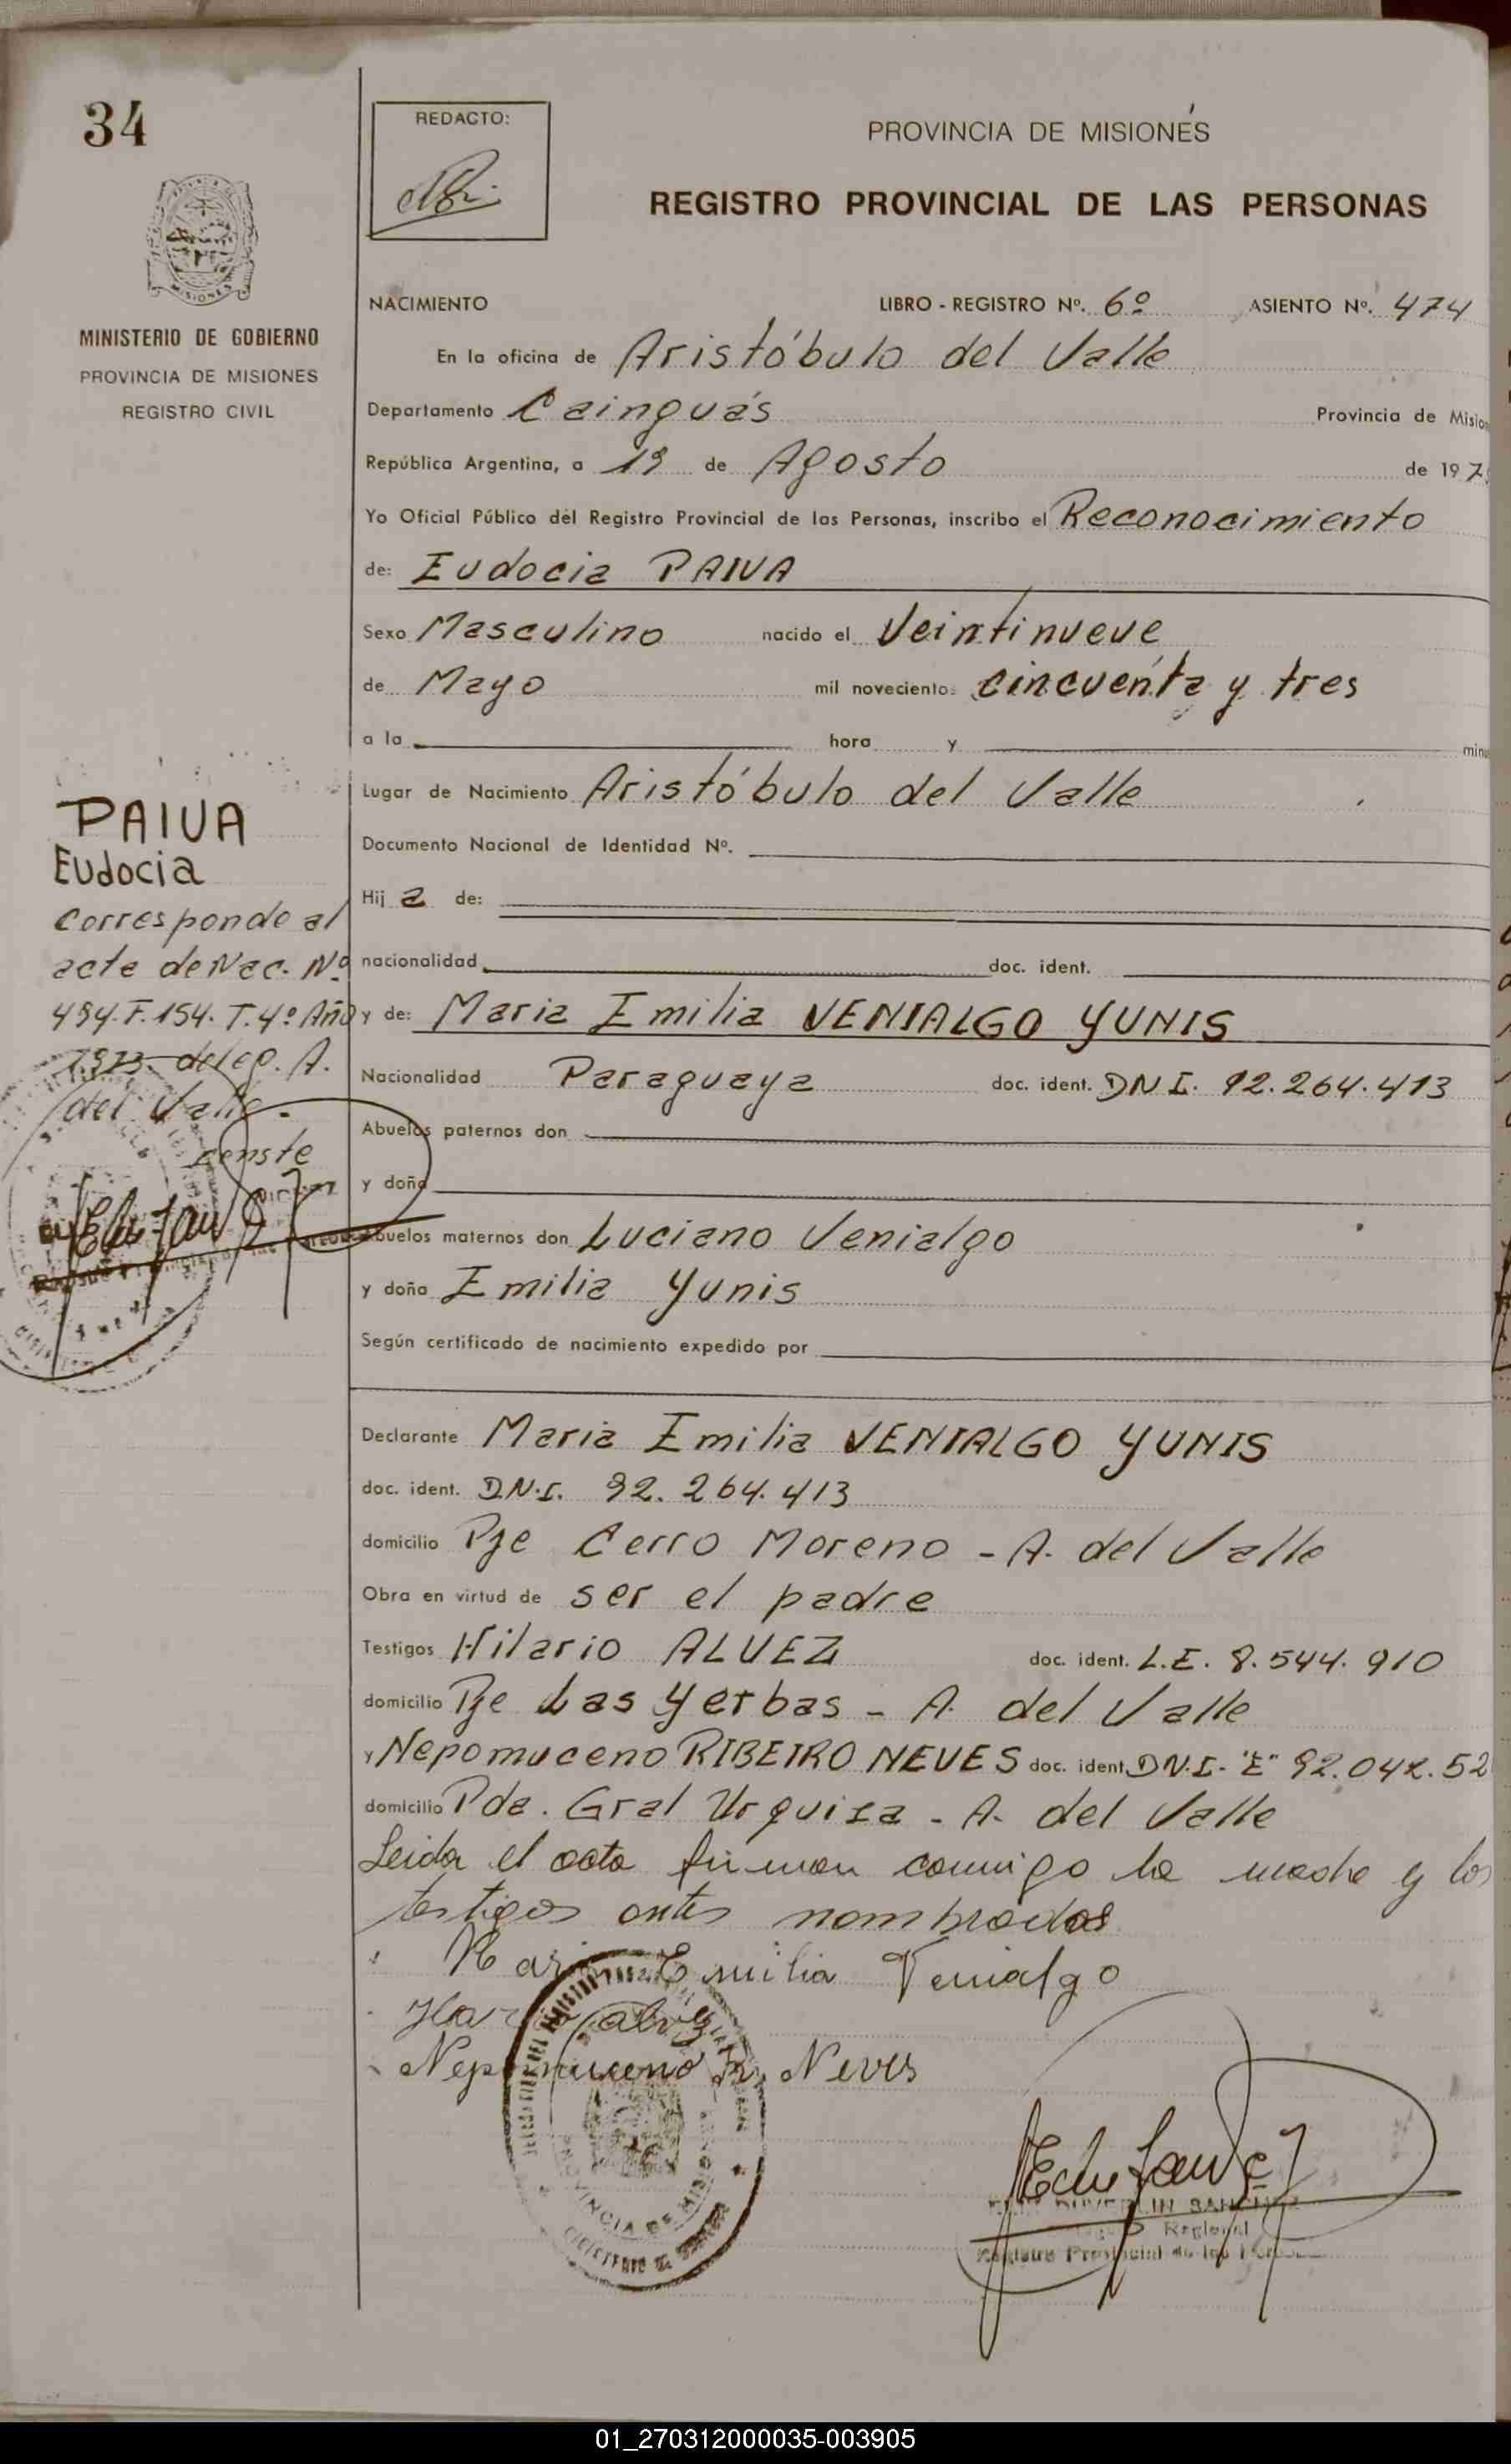 34
REDACTO:
PROVINCIA DE MISIONES
REGISTRO PROVINCIAL DE LAS PERSONAS
MISIONES
MINISTERIO DE GOBIERNO
PROVINCIA DE MISIONES
REGISTRO CIVIL
NACIMIENTO LIBRO - REGISTRO Nº. 6º ASIENTO Nº. 474
En la oficina de Aristóbulo del Valle
Departamento Cainguás Provincia de Mision
República Argentina, a 19 de Agosto de 197
Yo Oficial Público del Registro Provincial de las Personas, inscribo el Reconocimiento
de: Eudocia PAIVA
Sexo Masculino nacido el Veintinueve
de Mayo mil novecientos cincuenta y tres
a la hora y minu
Lugar de Nacimiento Aristóbulo del Valle
Documento Nacional de Identidad Nº.
Hij a de:
nacionalidad doc. ident.
y de: Maria Emilia VENIALGO YUNIS
Nacionalidad Paraguaya doc. ident. DNI. 92.264.413
Abuelos paternos don
y doña
Abuelos maternos don Luciano Venialgo
y doña Emilia Yunis
Según certificado de nacimiento expedido por
Declarante Maria Emilia VENIALGO YUNIS
doc. ident. D.N.I. 92.264.413
domicilio Pje Cerro Moreno - A. del Valle
Obra en virtud de ser el padre
Testigos Hilario ALVEZ doc. ident. L.E. 8.544.910
domicilio Pje Las Yerbas - A. del Valle
y Nepomuceno RIBEIRO NEVES doc. ident. D.N.I. "E" 92.042.52
domicilio Pda. Gral Urquiza - A. del Valle
Leida el acta firman conmigo la madre y los
testigos antes nombrados
Maria Emilia Venialgo
Alvez
Nepomuceno R. Neves
PROVINCIA DE MISIONES
SANCHEZ
Regional
Registro Provincial de las
PAIVA
Eudocia
Corresponde al
acta de Nac. Nº
494. F. 154. T. 4º Año
1973 deleg. A.
del Valle.
Conste
01_270312000035-003905